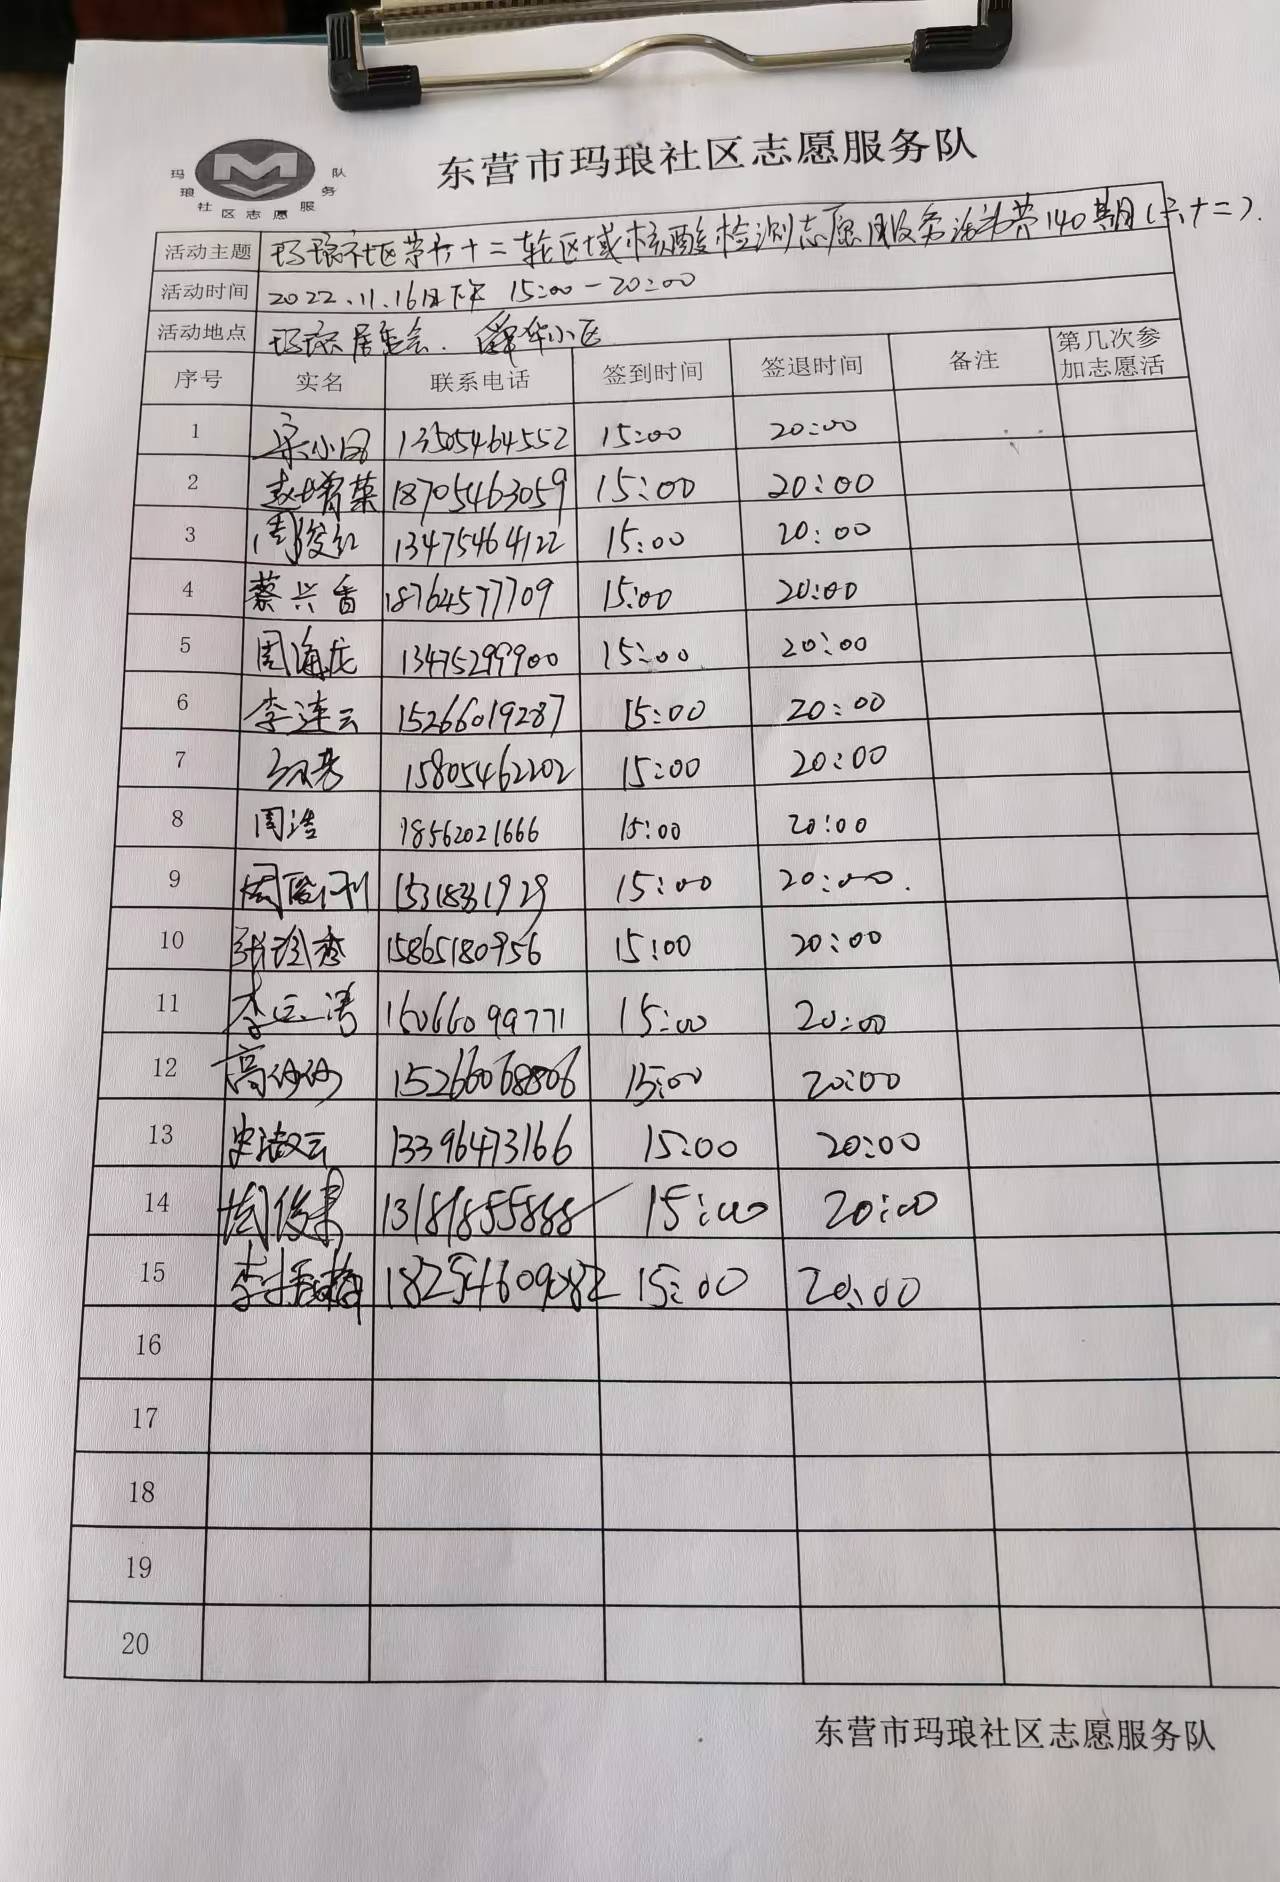 东营市玛琅社区志愿服务队
玛琅社区志愿服务队
活动主题 玛琅社区第六十二轮区域核酸检测志愿服务活动第140期(六十二).
活动时间 2022.11.16日下午 15:00-20:00
活动地点 玛琅居委会. 舜华小区
序号 实名 联系电话 签到时间 签退时间 备注 第几次参加志愿活
1 13505464552 15:00 20:00
2 赵增菊 18705463059 15:00 20:00
3 周俊红 13475464122 15:00 20:00
4 蔡兴香 18764577709 15:00 20:00
5 周海龙 13475299900 15:00 20:00
6 李连云 15266019287 15:00 20:00
7 15805462202 15:00 20:00
8 周浩 18562021666 15:00 20:00
9 15:00 20:00.
10 15865180956 15:00 20:00
11 15066099771 15:00 20:00
12 高沙沙 15266068806 15:00 20:00
13 史淑云 13396473166 15:00 20:00
14 周俊果 13181855868 15:00 20:00
15 李振梅 18254609082 15:00 20:00
16
17
18
19
20
东营市玛琅社区志愿服务队